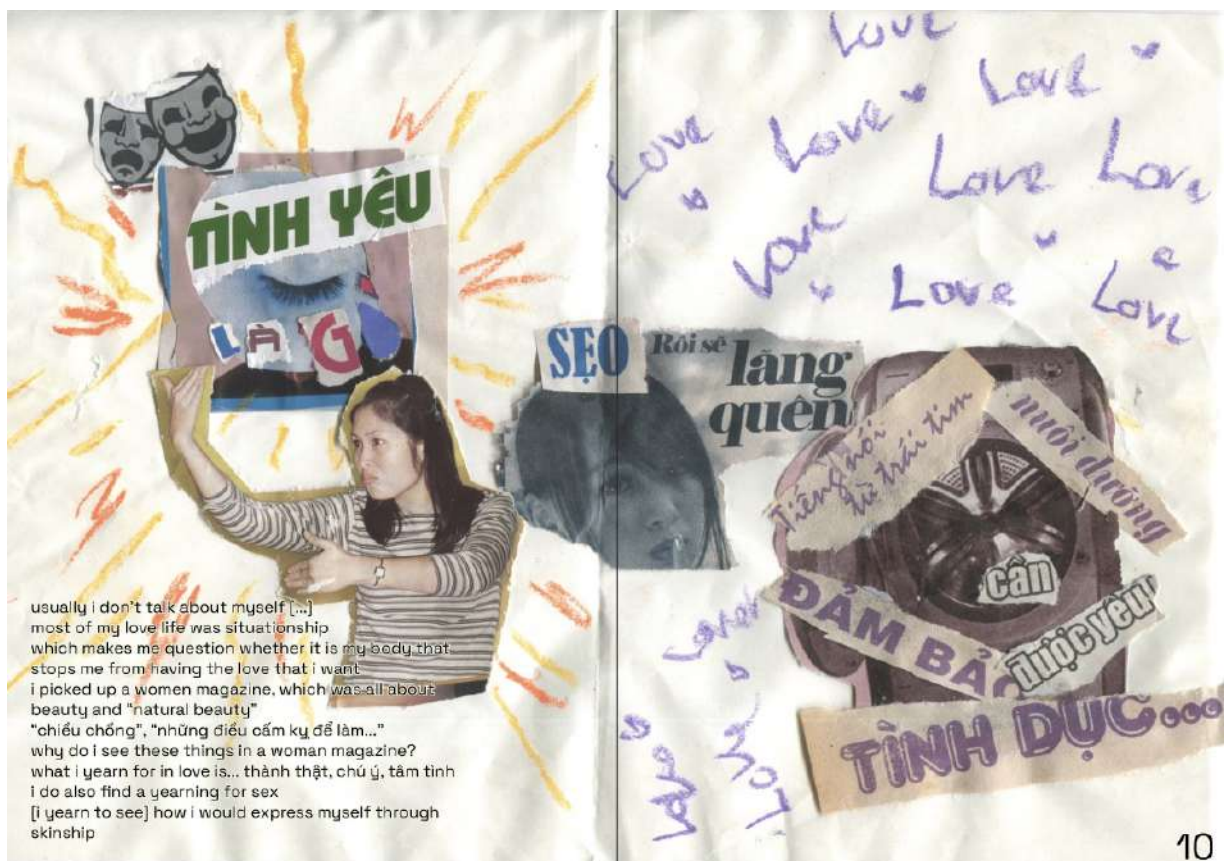 TÌNH YÊU
LÀ G
usually i don't talk about myself [...]
most of my love life was situationship
which makes me question whether it is my body that
stops me from having the love that i want
i picked up a women magazine, which was all about
beauty and “natural beauty”
“chiều chồng”, “những điều cấm kỵ để làm...”
why do i see these things in a woman magazine?
what i yearn for in love is... thành thật, chú ý, tâm tình
i do also find a yearning for sex
[i yearn to see] how i would express myself through
skinship
Love
Love
Love
Love
Love
Love
Love
Love
Love
SẸO
Rồi sẽ
lãng
quên
Tiếng nói
từ trái tim
nuôi dưỡng
cần
ĐẢM BẢO
được yêu
TÌNH DỤC...
Love
Love
Love
10